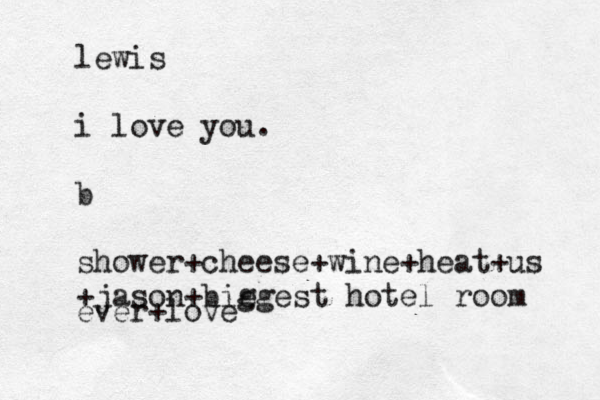 lewis
i love you.
b
shower+cheese+wine+heat+us
+jason+biggest hotel room
ever+love